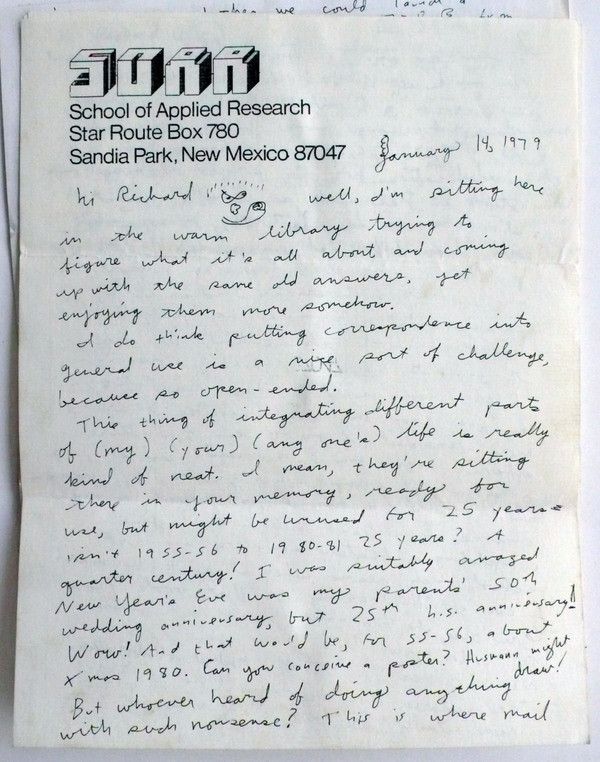 then we could
SORR
School of Applied Research
Star Route Box 780
Sandia Park, New Mexico 87047
January 14, 1979
hi Richard well, I'm sitting here
in the warm library trying to
figure what it's all about and coming
up with the same old answers, yet
enjoying them more somehow.
I do think putting correspondence into
general use is a nice sort of challenge,
because so open-ended.
This thing of integrating different parts
of (my) (your) (any one's) life is really
kind of neat. I mean, they're sitting
there in your memory, ready for
use, but might be unused for 25 years-
isn't 1955-56 to 1980-81 25 years? A
quarter century! I was suitably amazed
New Year's Eve was my parents' 50th
wedding anniversary, but 25th h.s. anniversary!!
Wow! And that would be, for 55-56, about
Xmas 1980. Can you conceive a poster? Husmann might
draw!
But whoever heard of doing anything
with such nonsense? This is where mail